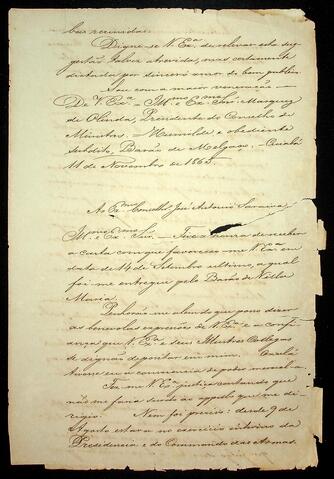 bas reccunidas.
Digne-se V. Exª de relevar esta sug-
gestão, talvez atrevida, mas certamente
dictada por sincero amor do bem publico.
Sou com a maior veneração —
De V. Exª — Ill.mo e Ex.mo Snr. Marquez
de Olinda, Presidente do Conselho de
Ministros. — Humilde e obediente
subdito, Barão de Melgaço. — Cuiabá
11 de Novembro de 1865.
Ao Ex.mo Conselhº José Antonio Saraiva.
Ill.mo e Ex.mo Snr. — Tive a honra de receber
a carta com que favoreceu-me V. Exª em
data de 14 de Setembro ultimo, a qual
foi-me entregue pelo Barão de Villa
Maria.
Penhorão-me alem do que posso dizer
as benevolas expressões de V. Exª e a confi-
ança que V. Exª e seus Illustres Collegas
se dignão depositar em mim. Oxalá
tivesse eu a consciencia de poder merecel-a.
Fez-me V. Exª justiça contando que
não me faria surdo ao appello que me di-
rigio. Nem foi preciso: desde 9 de
Agosto estava no exercicio interino da
Presidencia e do Commando das Armas.